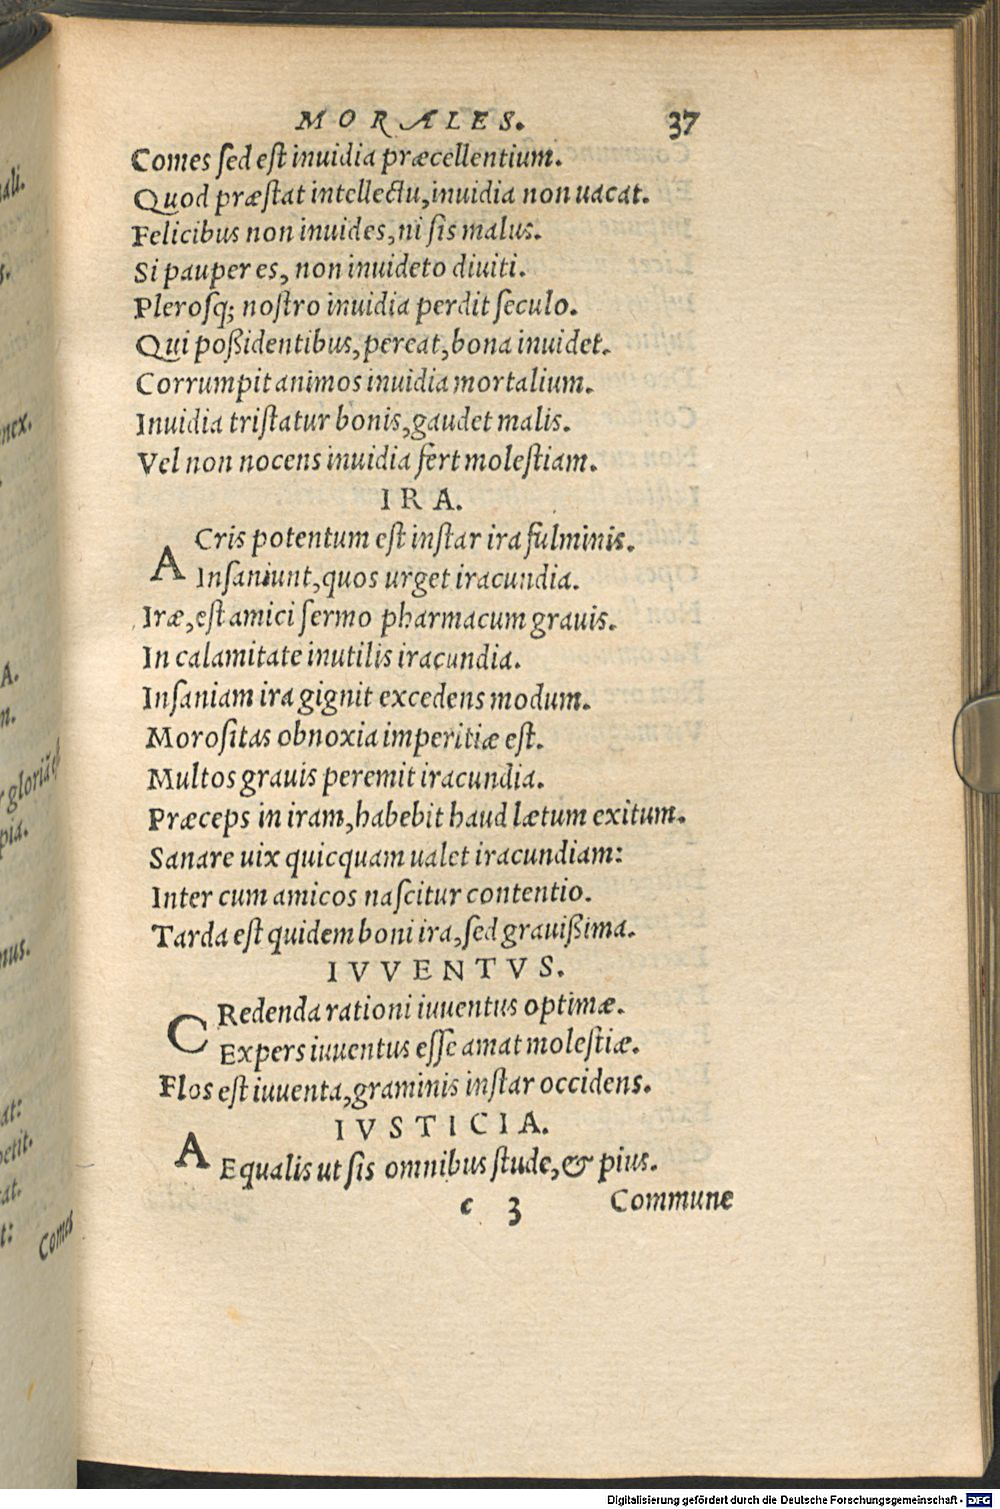 MORALES. 37
Comes sed est inuidia præcellentium.
Quod præstat intellectu, inuidia non uacat.
Felicibus non inuides, ni sis malus.
Si pauper es, non inuideto diuiti.
Plerosq; nostro inuidia perdit seculo.
Qui poßidentibus, pereat, bona inuidet.
Corrumpit animos inuidia mortalium.
Inuidia tristatur bonis, gaudet malis.
Vel non nocens inuidia fert molestiam.
IRA.
ACris potentum est instar ira fulminis.
Insaniunt, quos urget iracundia.
Iræ, est amici sermo pharmacum grauis.
In calamitate inutilis iracundia.
Insaniam ira gignit excedens modum.
Morositas obnoxia imperitiæ est.
Multos grauis peremit iracundia.
Præceps in iram, habebit haud lætum exitum.
Sanare uix quicquam ualet iracundiam:
Inter cum amicos nascitur contentio.
Tarda est quidem boni ira, sed grauißima.
IVVENTVS.
CRedenda rationi iuuentus optimæ.
Expers iuuentus esse amat molestiæ.
Flos est iuuenta, graminis instar occidens.
IVSTICIA.
AEqualis ut sis omnibus stude, & pius.
c 3 Commune
Comes
Digitalisierung gefördert durch die Deutsche Forschungsgemeinschaft - DFG